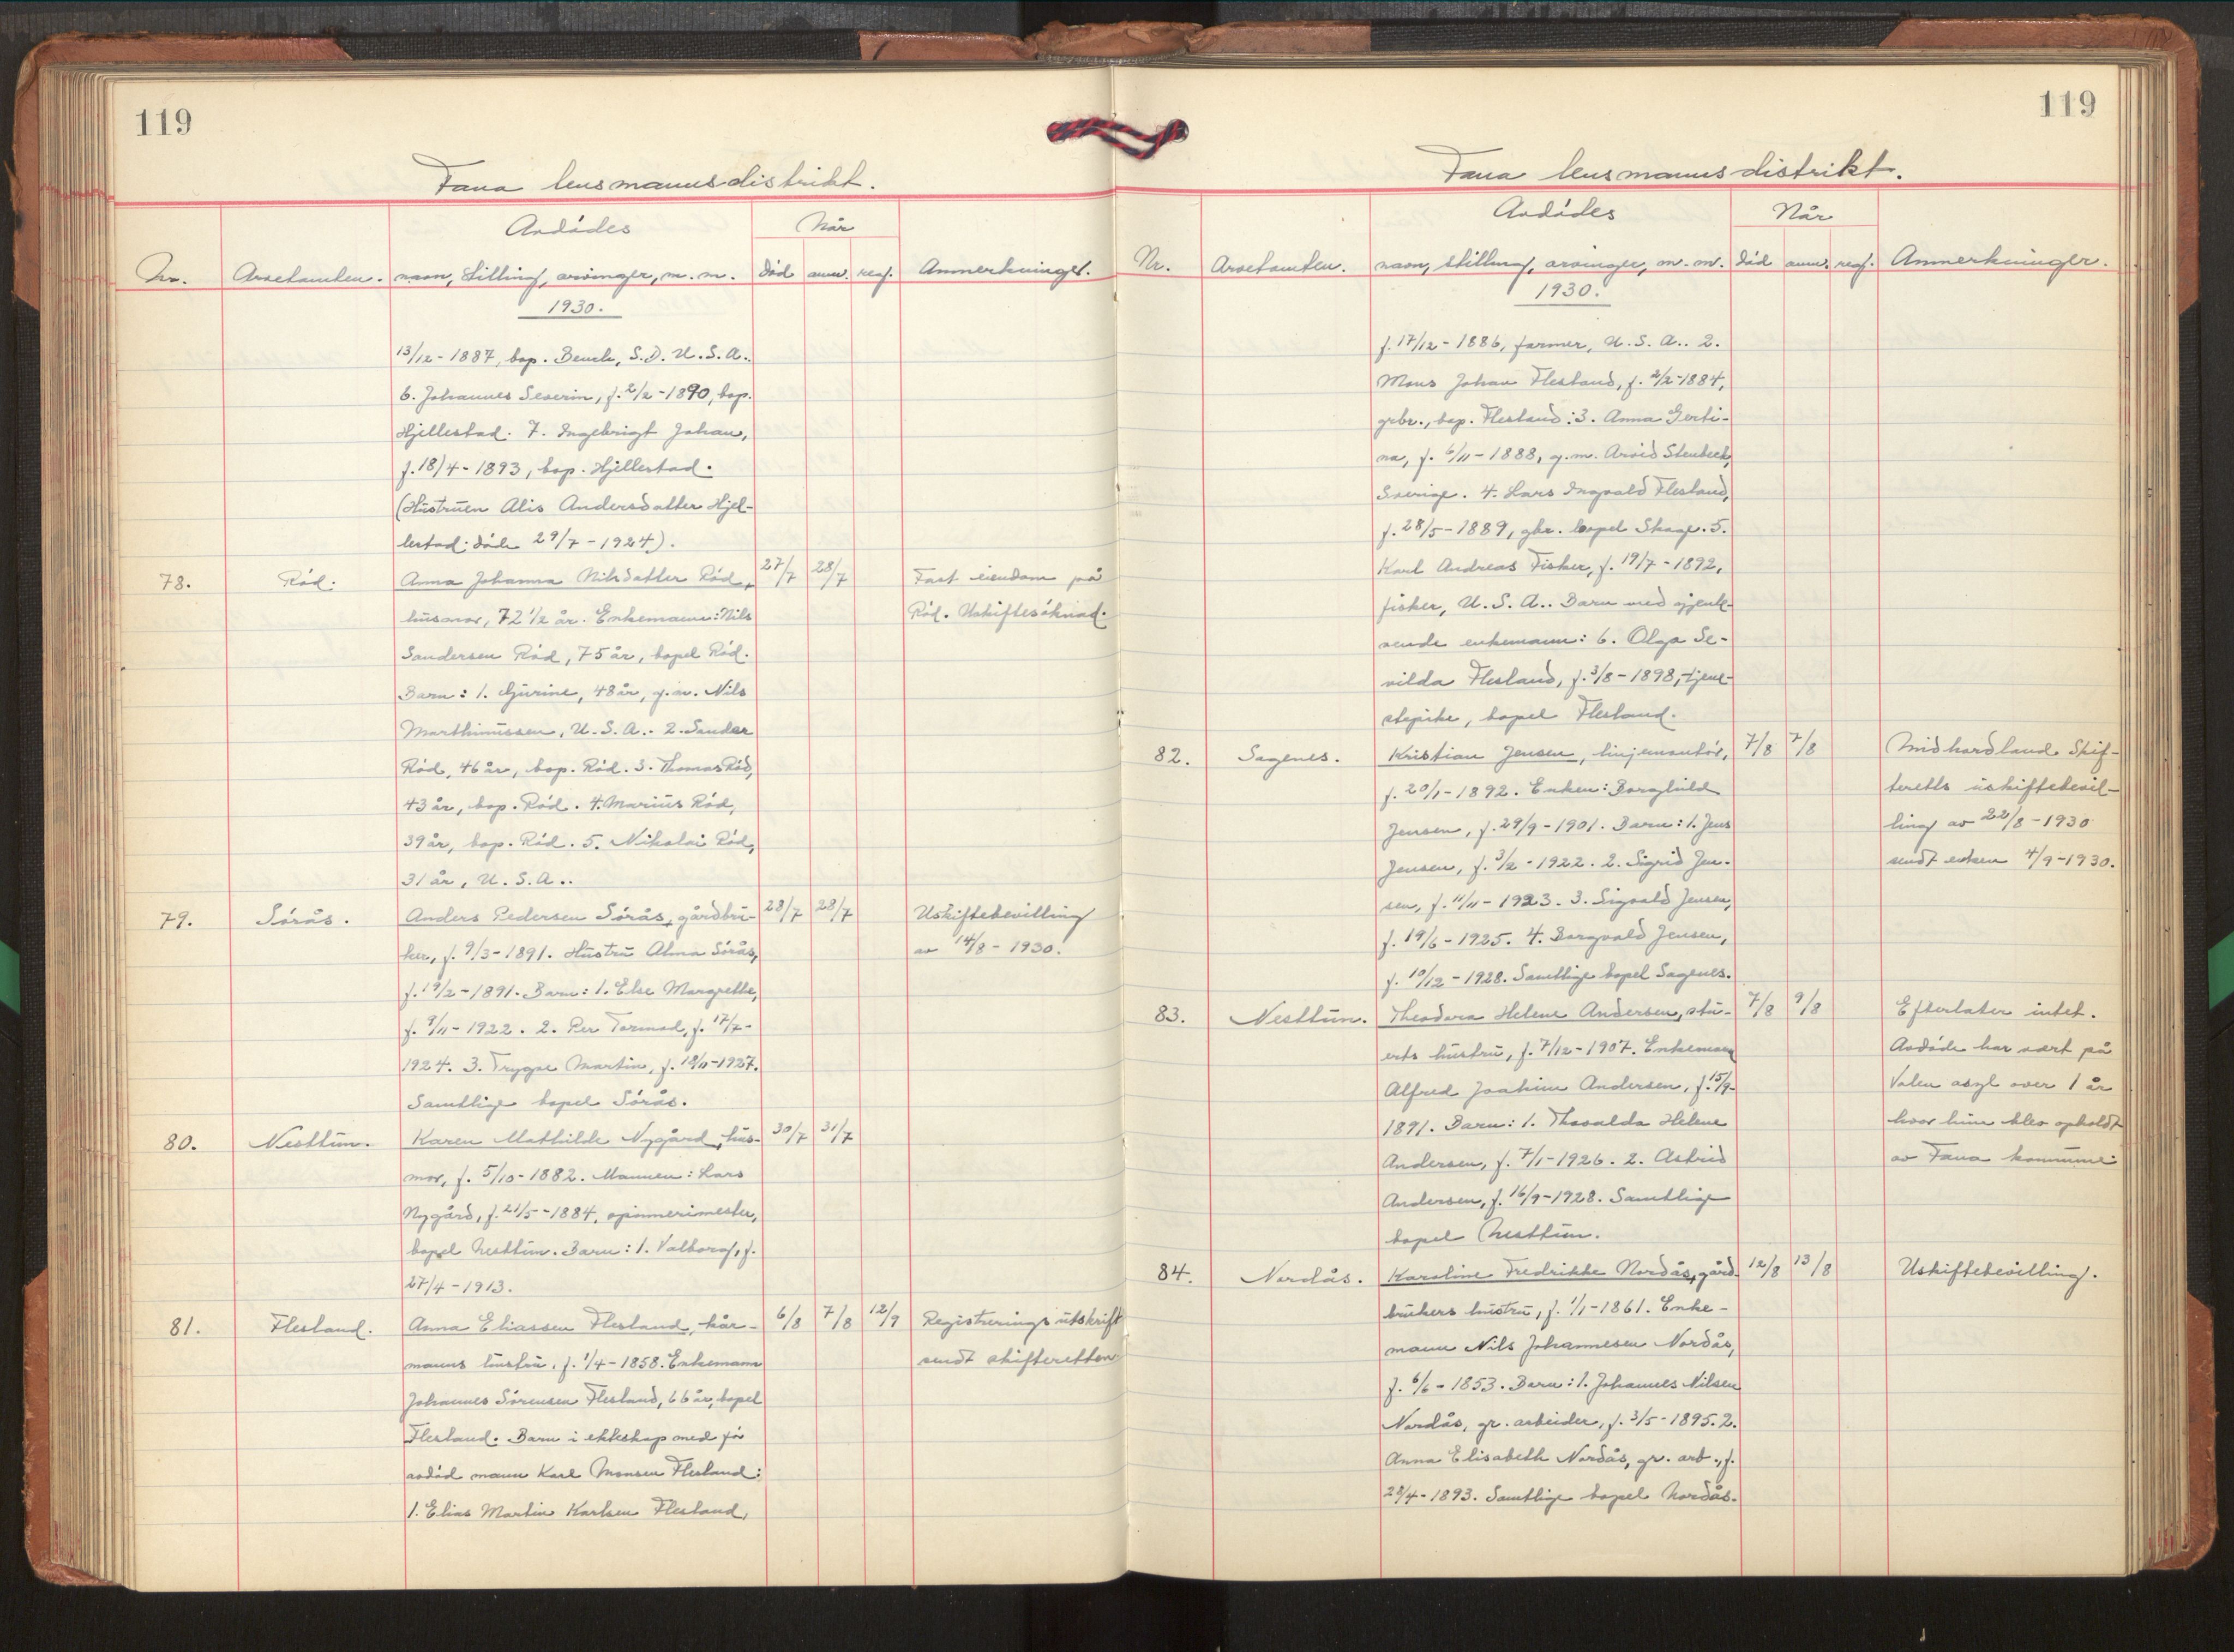 119
Fana lensmannsdistrikt.
Avdødes
Når
Nr.
Arvetomten.
navn, stilling, arvinger, m. m.
død
anm.
reg.
Anmerkninger.
1930.
13/12 - 1887, bop. , S. D. U. S. A..
6. Johannes Severin, f. 2/2 - 1890, bop.
Hjellestad. 7. Ingebrigt Johan,
f. 18/4 - 1893, bop. Hjellestad.
(Hustruen Alis Andersdatter Hjel-
lestad døde 29/7 - 1924).
78.
Rød.
Anna Johanna Nilsdatter Rød,
27/7
28/7
Fast eiendom på
husmor, 72 1/2 år. Enkemann: Nils
Rød. Uskiftesøknad.
Sandersen Rød, 75 år, bopel Rød.
Barn: 1. Gjurine, 48 år, g. m. Nils
Marthinussen, U. S. A.. 2. Sander
Rød, 46 år, bop. Rød. 3. Thomas Rød,
43 år, bop. Rød. 4. Marius Rød,
39 år, bop. Rød. 5. Nikolai Rød,
31 år, U. S. A..
79.
Sørås.
Anders Pedersen Sørås, gårdbru-
28/7
28/7
Uskiftebevilling
ker, f. 9/3 - 1891. Hustru Alma Sørås,
av 14/8 - 1930.
f. 19/2 - 1891. Barn: 1. Else Margrethe,
f. 9/11 - 1922. 2. Per Tormod, f. 17/7 -
1924. 3. Trygve Martin, f. 18/11 - 1927.
Samtlige bopel Sørås.
80.
Nesttun.
Karen Mathilde Nygård, hus-
30/7
31/7
mor, f. 5/10 - 1882. Mannen: Lars
Nygård, f. 21/5 - 1884, spinnerimester,
bopel Nesttun. Barn: 1. Valborg, f.
27/4 - 1913.
81.
Flesland.
Anna Eliassen Flesland, kår-
6/8
7/8
12/9
Registreringsutskrift
manns hustru, f. 1/4 - 1858. Enkemann
sendt skifteretten
Johannes Sørensen Flesland, 66 år, bopel
Flesland. Barn i ekteskap med før
avdød mann Karl Monsen Flesland:
1. Elias Martin Karlsen Flesland,
119
Fana lensmannsdistrikt.
Avdødes
Når
Nr.
Arvetomten.
navn, stilling, arvinger, m. m.
død
anm.
reg.
Anmerkninger.
1930.
f. 17/12 - 1886, farmer, U. S. A.. 2.
Mons Johan Flesland, f. 2/2 - 1884,
grbr., bop. Flesland. 3. Anna Gerti-
na, f. 6/11 - 1888, g. m. Arvid Stenbeck,
Sverige. 4. Lars Ingvald Flesland,
f. 28/5 - 1889, gbr. bopel Skage. 5.
Karl Andreas Fisker, f. 19/7 - 1892,
fisker, U. S. A.. Barn med gjenle-
vende enkemann: 6. Olga Se-
vilda Flesland, f. 3/8 - 1898, tjene-
stepike, bopel Flesland.
82.
Sagenes.
Kristian Jensen, linjemontør,
7/8
7/8
Midhordland Skif-
f. 20/1 - 1892. Enken: Borghild
teretts uskiftebevil-
Jensen, f. 29/9 - 1901. Barn: 1. Jens
ling av 22/8 - 1930
Jensen, f. 3/2 - 1922. 2. Sigrid Jen-
sendt enken 4/9 - 1930.
sen, f. 11/11 - 1923. 3. Sigvald Jensen,
f. 19/6 - 1925. 4. Borgvald Jensen,
f. 10/12 - 1928. Samtlige bopel Sagenes.
83.
Nesttun.
Theodora Helene Andersen, stu-
7/8
9/8
Efterlater intet.
erts hustru, f. 7/12 - 1907. Enkemann
Avdøde har vært på
Alfred Joakim Andersen, f. 15/9 -
Valen asyl over 1 år
1891. Barn: 1. Thovalda Helene
hvor hun blev opholdt
Andersen, f. 7/1 - 1926. 2. Astrid
av Fana kommune
Andersen, f. 16/9 - 1928. Samtlige
bopel Nesttun.
84.
Nordås.
Karoline Fredrikke Nordås, gård-
12/8
13/8
Uskiftebevilling.
brukers hustru, f. 1/1 - 1861. Enke-
mann Nils Johannesen Nordås,
f. 6/6 - 1853. Barn: 1. Johannes Nilsen
Nordås, gr. arbeider, f. 3/5 - 1895. 2.
Anna Elisabeth Nordås, gr. arb., f.
28/4 - 1893. Samtlige bopel Nordås.